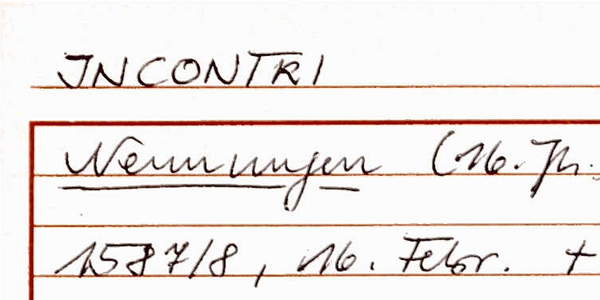 INCONTRI
Nennungen (16. Jh.
1587/8, 16. Febr. +